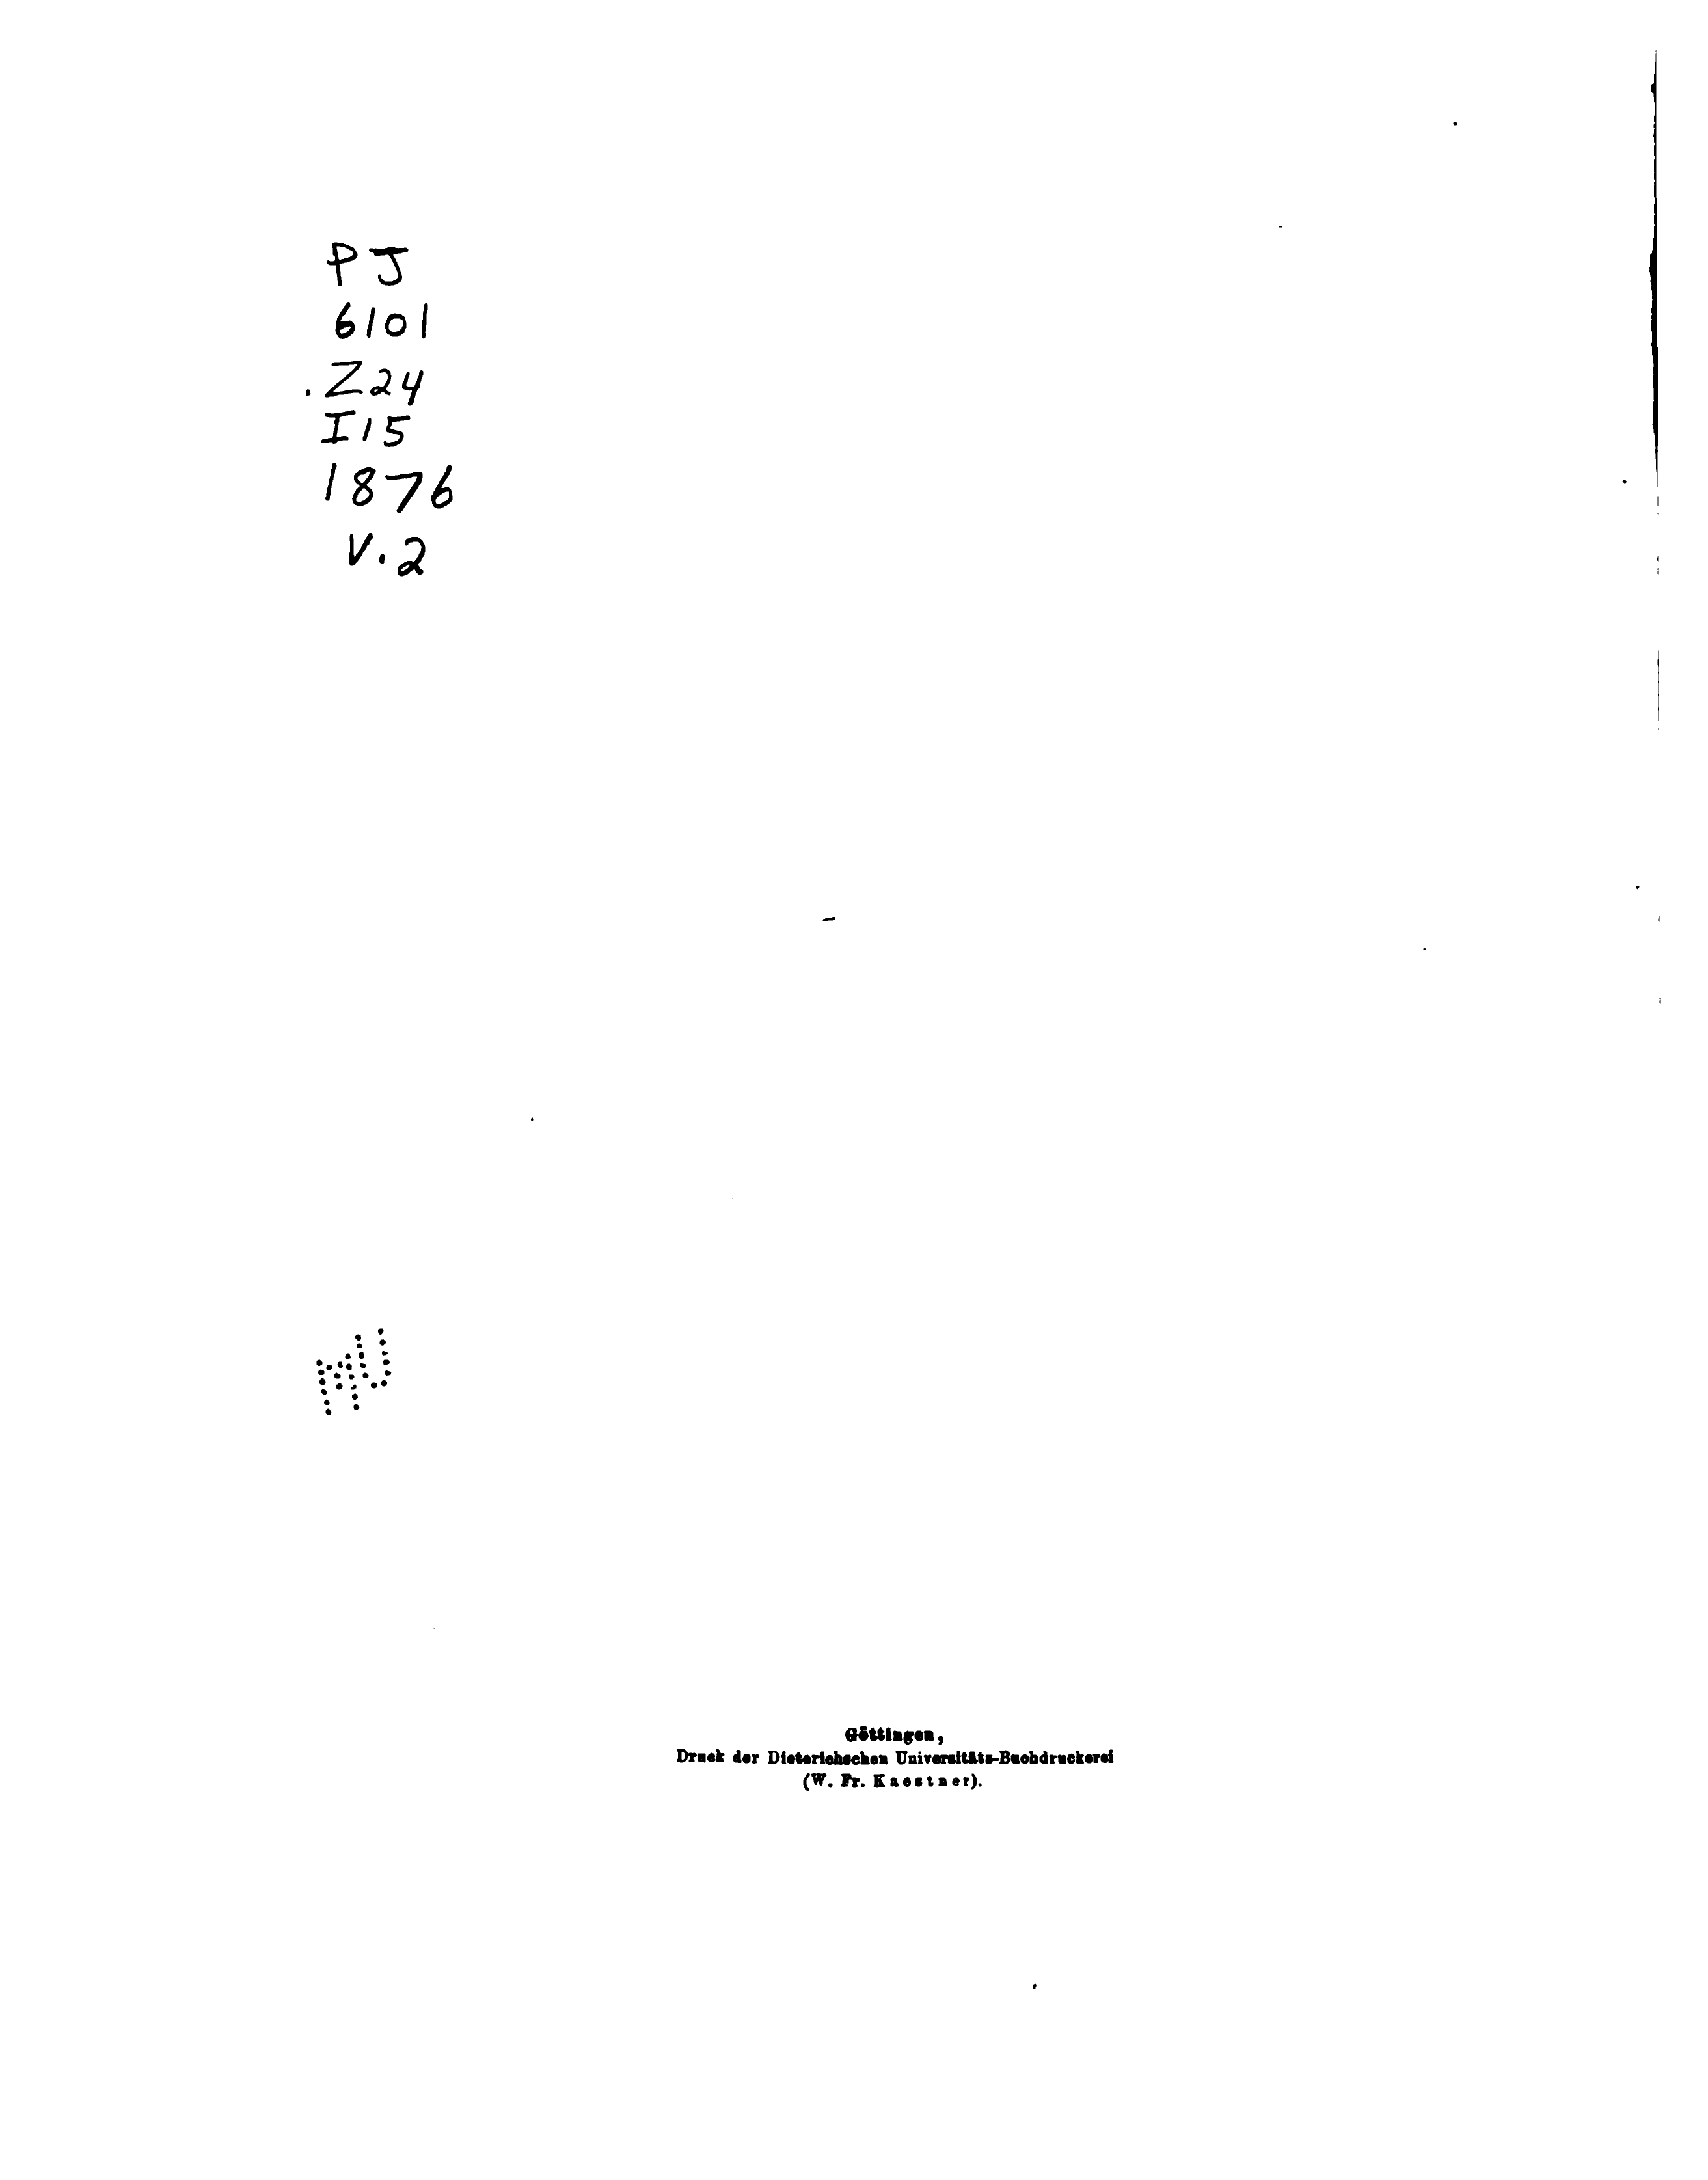 PJ
6101
.Z24
I15
1876
V.2
Göttingen,
Druck der Dieterichschen Universitäts-Buchdruckerei
(W. Fr. Kaestner).